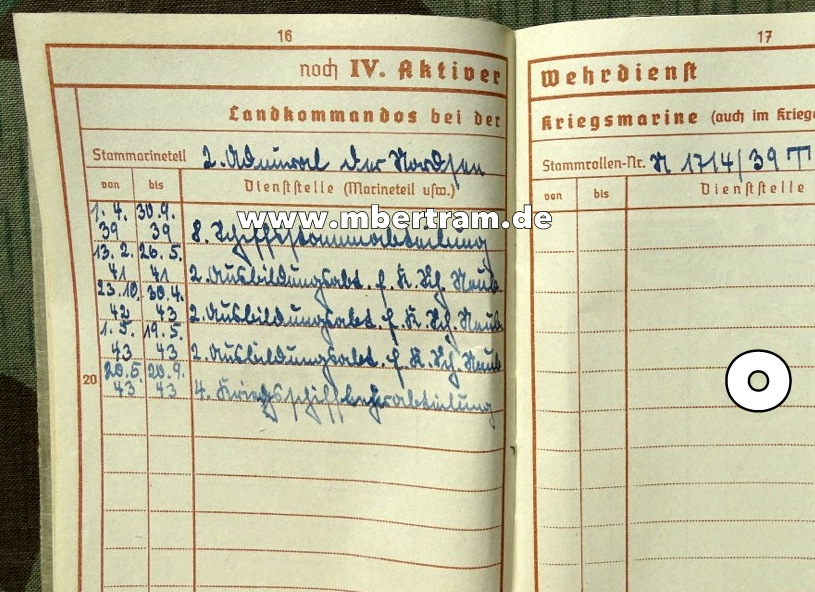 16
noch IV. Aktiver
Landkommandos bei der
Stammarineteil 2. Admiral der Nordsee
von bis Dienststelle (Marineteil usw.)
www.mbertram.de
1. 4. 39 30. 9. 39 8. Schiffsstammabteilung
13. 2. 41 26. 5. 41 2. Ausbildungsabt. f. K. Sch. Neub.
23. 10. 42 30. 4. 43 2. Ausbildungsabt. f. K. Sch. Neub.
1. 5. 43 19. 5. 43 2. Ausbildungsabt. f. K. Sch. Neub.
20
20. 5. 43 20. 9. 43 4. Kriegsschiffbauabteilung
17
Wehrdienst
Kriegsmarine (auch im Kriege
Stammrollen-Nr. N 1714/39 T
von bis Dienststelle